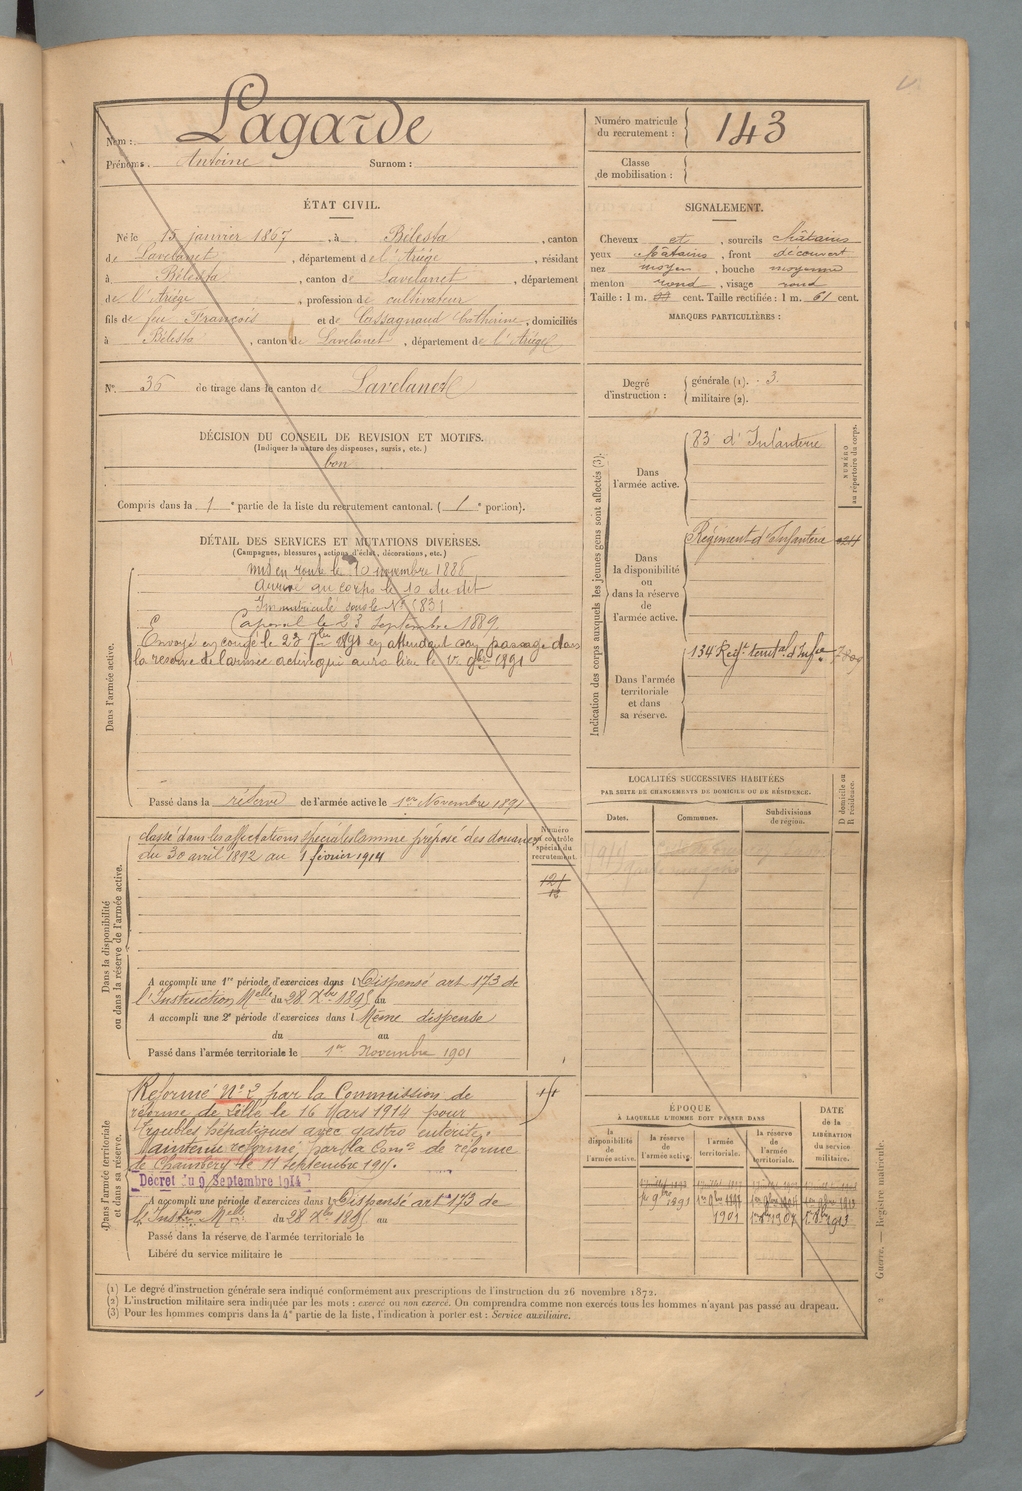 Nom : Lagarde
Prénoms. Antoine Surnom :
Numéro matricule du recrutement : 143
Classe de mobilisation :
ÉTAT CIVIL.
Né le 15 janvier 1867, à Bélesta, canton
de Lavelanet, département de l'Ariège, résidant
à Bélesta, canton de Lavelanet, département
de l'Ariège, profession de cultivateur
fils de feu François et de Cassagnaud Catherine, domiciliés
à Bélesta, canton de Lavelanet, département de l'Ariège
N° 36 de tirage dans le canton de Lavelanet
SIGNALEMENT.
Cheveux et, sourcils châtains
yeux châtains, front découvert
nez moyen, bouche moyenne
menton rond, visage rond
Taille : 1 m. cent. Taille rectifiée : 1 m. 61 cent.
MARQUES PARTICULIÈRES :
Degré d'instruction : générale (1). 3
militaire (2).
DÉCISION DU CONSEIL DE REVISION ET MOTIFS.
(Indiquer la nature des dispenses, sursis, etc.)
bon
Compris dans la 1e partie de la liste du recrutement cantonal. (1e portion).
DÉTAIL DES SERVICES ET MUTATIONS DIVERSES.
(Campagnes, blessures, actions d'éclat, décorations, etc.)
Dans l'armée active.
Mis en route le 10 novembre 1888
Arrivé au corps le 10 du dit
Immatriculé sous le N°
Caporal le 23 Septembre 1889.
Envoyé en congé le 23 7bre 1891 en attendant son passage dans
la réserve de l'armée active qui aura lieu le 1er 9bre 1891
Passé dans la réserve de l'armée active le 1er Novembre 1891
Dans la disponibilité ou dans la réserve de l'armée active.
Numéro au contrôle spécial du recrutement.
classé dans les affectations spéciales comme préposé des douanes
du 30 avril 1892 au 1 février 1914
121
A accompli une 1re période d'exercices dans l Dispensé art 173 de
l'Instruction Melle du 28 Xbre 1895 au
A accompli une 2e période d'exercices dans l Même dispense
du au
Passé dans l'armée territoriale le 1er Novembre 1901
Dans l'armée territoriale et dans sa réserve.
Réformé N° 2 par la Commission de
réforme de Lille le 16 Mars 1914 pour
troubles hépatiques avec gastro entérite.
Maintenu réformé par la Comon de réforme
de Chambéry le 11 septembre 191.
Décret du 9 Septembre 1914
A accompli une période d'exercices dans l Dispensé art 173 de
l'Inston Melle du 28 Xbre 1895 au
Passé dans la réserve de l'armée territoriale le
Libéré du service militaire le
Indication des corps auxquels les jeunes gens sont affectés (3).
NUMÉRO au répertoire du corps.
Dans l'armée active.
83 d'Infanterie
Dans la disponibilité ou dans la réserve de l'armée active.
Régiment d'Infanterie
Dans l'armée territoriale et dans sa réserve.
134 Regt territal d'Infie
LOCALITÉS SUCCESSIVES HABITÉES
PAR SUITE DE CHANGEMENTS DE DOMICILE OU DE RÉSIDENCE.
D domicile ou R résidence.
Dates. Communes. Subdivisions de région.
ÉPOQUE
À LAQUELLE L'HOMME DOIT PASSER DANS
la disponibilité de l'armée active.
la réserve de l'armée active.
l'armée territoriale.
la réserve de l'armée territoriale.
DATE de la LIBÉRATION du service militaire.
1er 9bre 1891
1901
(1) Le degré d'instruction générale sera indiqué conformément aux prescriptions de l'instruction du 26 novembre 1872.
(2) L'instruction militaire sera indiquée par les mots : exercé ou non exercé. On comprendra comme non exercés tous les hommes n'ayant pas passé au drapeau.
(3) Pour les hommes compris dans la 4e partie de la liste, l'indication à porter est : Service auxiliaire.
Guerre. — Registre matricule.